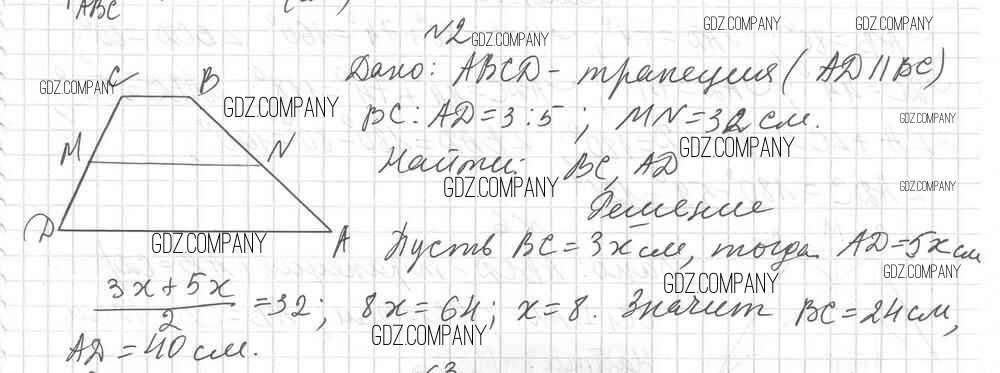 ABC
№2 GDZ.COMPANY GDZ.COMPANY GDZ.COMPANY
GDZ.COMPANY C B Дано: ABCD - трапеция (AD || BC)
GDZ.COMPANY BC : AD = 3 : 5 ; MN = 32 см. GDZ.COMPANY
M N Найти: BC, AD GDZ.COMPANY
GDZ.COMPANY GDZ.COMPANY
Решение
D GDZ.COMPANY A Пусть BC = 3x см, тогда AD = 5x см
GDZ.COMPANY GDZ.COMPANY
3x + 5x / 2 = 32; 8x = 64; x = 8. Значит BC = 24 см,
GDZ.COMPANY
AD = 40 см.